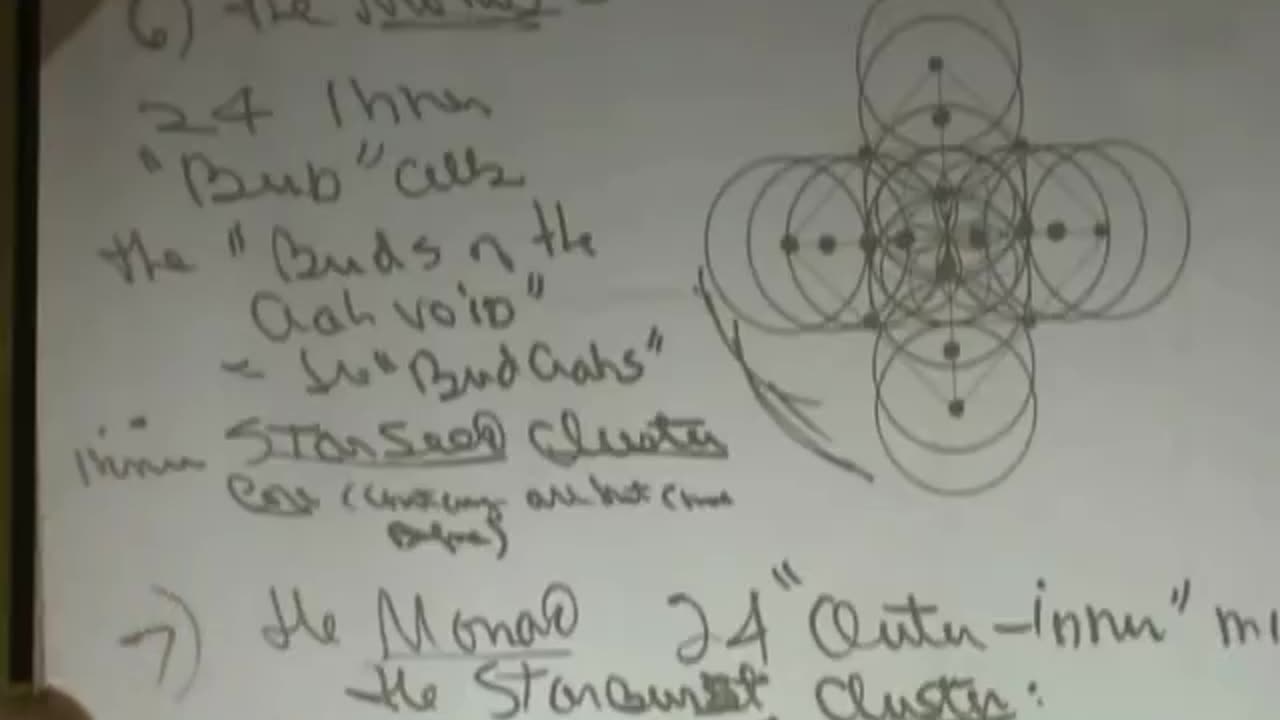 6) the
24 Inner
"Bub" cells
the "Buds of the
Aah void"
- the "Bud Aahs"
inner StarSeed Cluster
Core ( are not
7) the Monad 24 "Outer-inner"
- the Starburst Cluster: